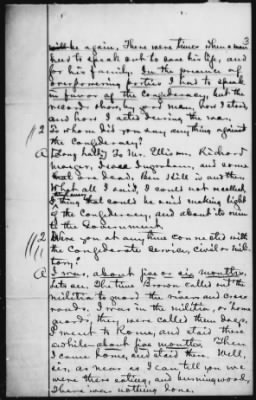 3
will be again. There were times when a man
had to speak out to save his life, and
for his family. In the presence of
overpowering parties I had to speak
in favor of the Confederacy, but the
record shows, by good men, how I stood
and how I acted during the war.
112 To whom did you say anything against
the Confederacy?
A Long talks to Mr. Ellison, Richard
Mauser, Jesse Ingraham, and some
that are dead. Ben Hill is another.
What all I said, I could not recollect.
thing that could be said making light
of the Confederacy, and about its ruin
to the Government
112 Were you at any time connected with
the Confederate service, civil or mili-
tary?
A I was, about five or six months.
Lets see. The time Brown called out the
militia to guard the rivers and cross
roads. I was in the militia, or home
guard; they were called them days.
I went to Rome, and staid there
awhile about five months. Then
I came home, and staid there. Well,
sir, as near as I can tell you we
were there eating, and burning wood,
There was nothing done.